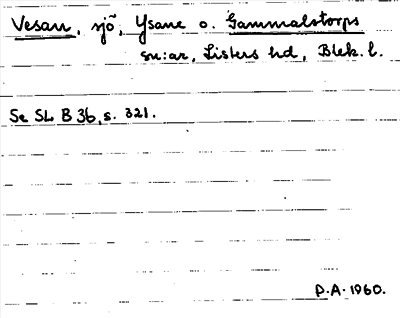 Vesan, sjö, Ysane o. Gammalstorps
sn:ar, Listers hd, Blek. l.
Se SL B 3b, s. 321.
P.A. 1960.